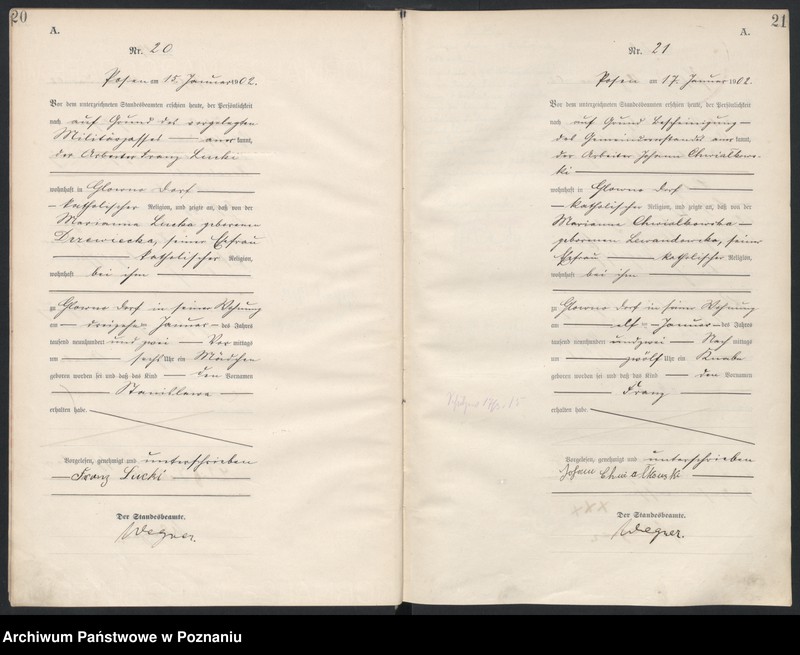 20
A.
Nr. 20
Posen am 15. Januar 1902.
Vor dem unterzeichneten Standesbeamten erschien heute, der Persönlichkeit
nach auf Grund des vorgelegten
Militärpasses anerkannt,
der Arbeiter Franz Lucki
wohnhaft in Glowno Dorf
katholischer Religion, und zeigte an, daß von der
Marianna Lucka geborenen
Drzewiecka, seiner Ehefrau
katholischer Religion,
wohnhaft bei ihm
zu Glowno Dorf in seiner Wohnung
am dreizehn Januar des Jahres
tausend neunhundert und zwei Vor mittags
um sechs Uhr ein Mädchen
geboren worden sei und daß das Kind den Vornamen
Stanislawa
erhalten habe.
Vorgelesen, genehmigt und unterschrieben
Franz Lucki
Der Standesbeamte.
Wegner.
21
A.
Nr. 21
Posen am 17. Januar 1902.
Vor dem unterzeichneten Standesbeamten erschien heute, der Persönlichkeit
nach auf Grund Bescheinigung
des Gemeindevorstandes anerkannt,
der Arbeiter Johann Chwialkows-
ki
wohnhaft in Glowno Dorf
katholischer Religion, und zeigte an, daß von der
Marianna Chwialkowska
geborenen Lewandowska, seiner
Ehefrau katholischer Religion,
wohnhaft bei ihm
zu Glowno Dorf in seiner Wohnung
am elf Januar des Jahres
tausend neunhundert und zwei Nach mittags
um zwölf Uhr ein Knabe
geboren worden sei und daß das Kind den Vornamen
Franz
erhalten habe.
Vorgelesen, genehmigt und unterschrieben
Johann
Der Standesbeamte.
Wegner.
Archiwum Państwowe w Poznaniu